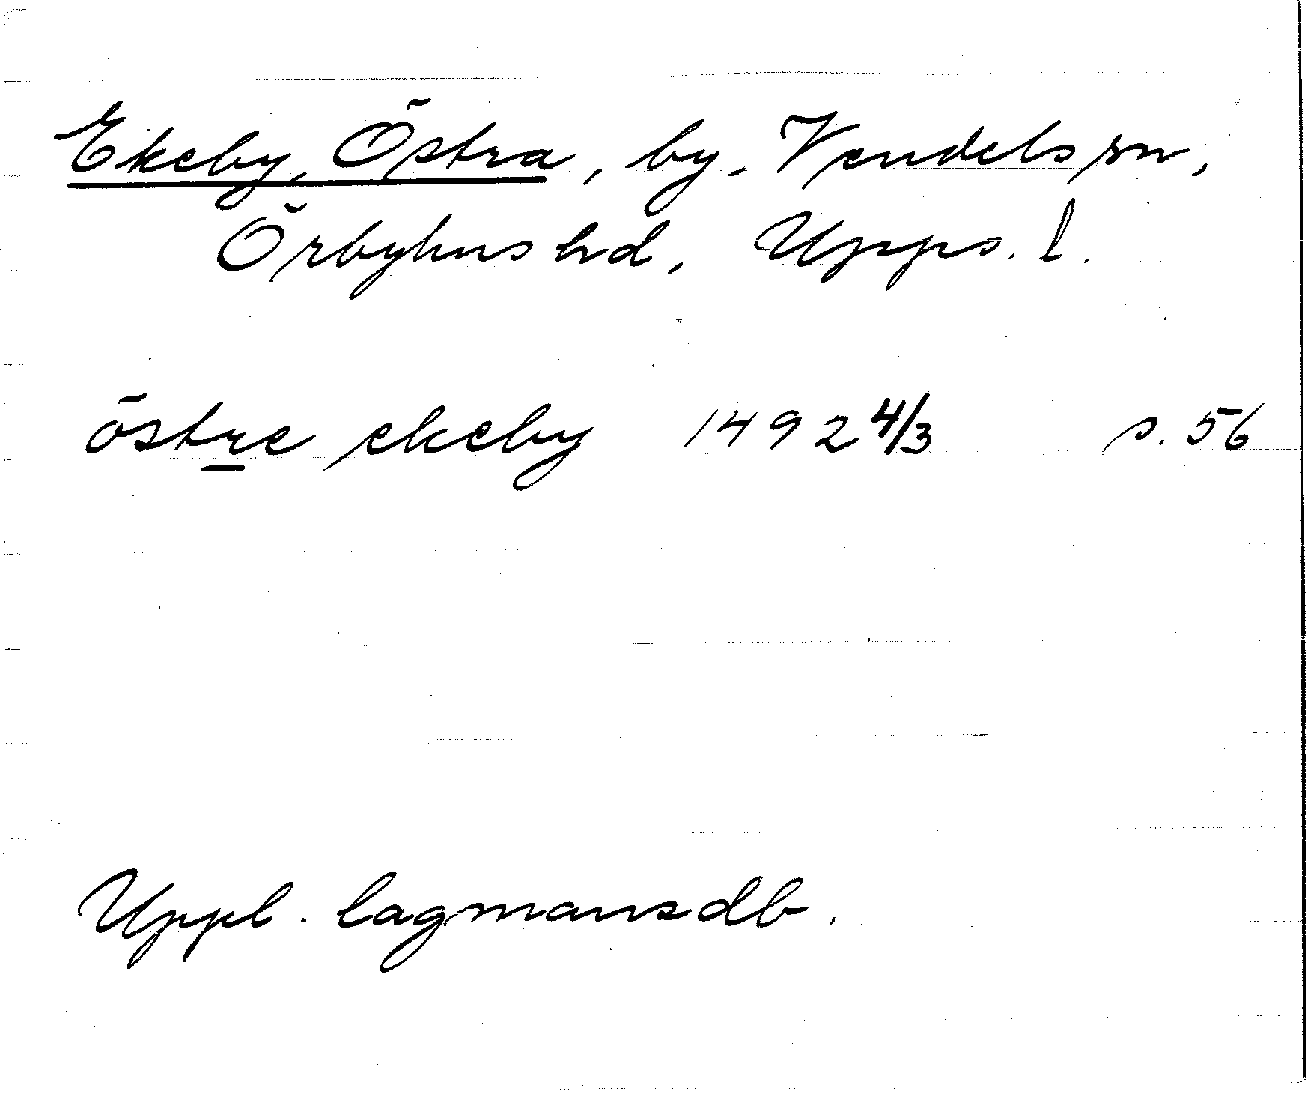 Ekeby, Östra, by. Vendels sn,
Örbyhus hd, Upps. l.
östre ekeby 1492 4/3 s. 56
Uppl. lagmansdb.